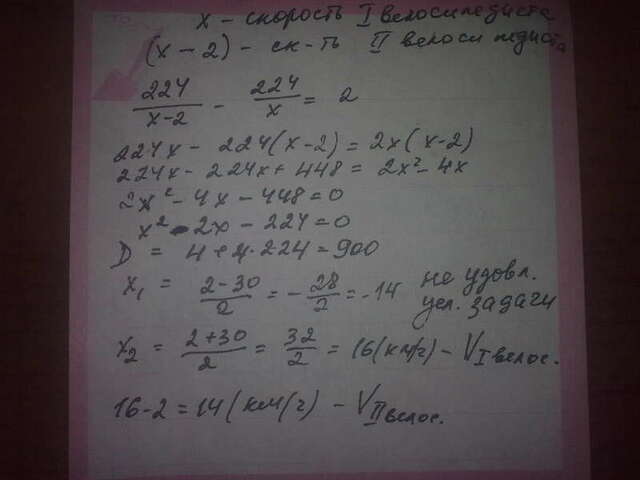 x - скорость I велосипедиста
(x - 2) - ск-ть II велосипедиста
224/(x-2) - 224/x = 2
224x - 224(x-2) = 2x(x-2)
224x - 224x + 448 = 2x² - 4x
2x² - 4x - 448 = 0
x² - 2x - 224 = 0
D = 4 + 4·224 = 900
x₁ = (2-30)/2 = -28/2 = -14 не удовл. усл. задачи
x₂ = (2+30)/2 = 32/2 = 16 (км/ч) - V I велос.
16-2 = 14 (км/ч) - V II велос.